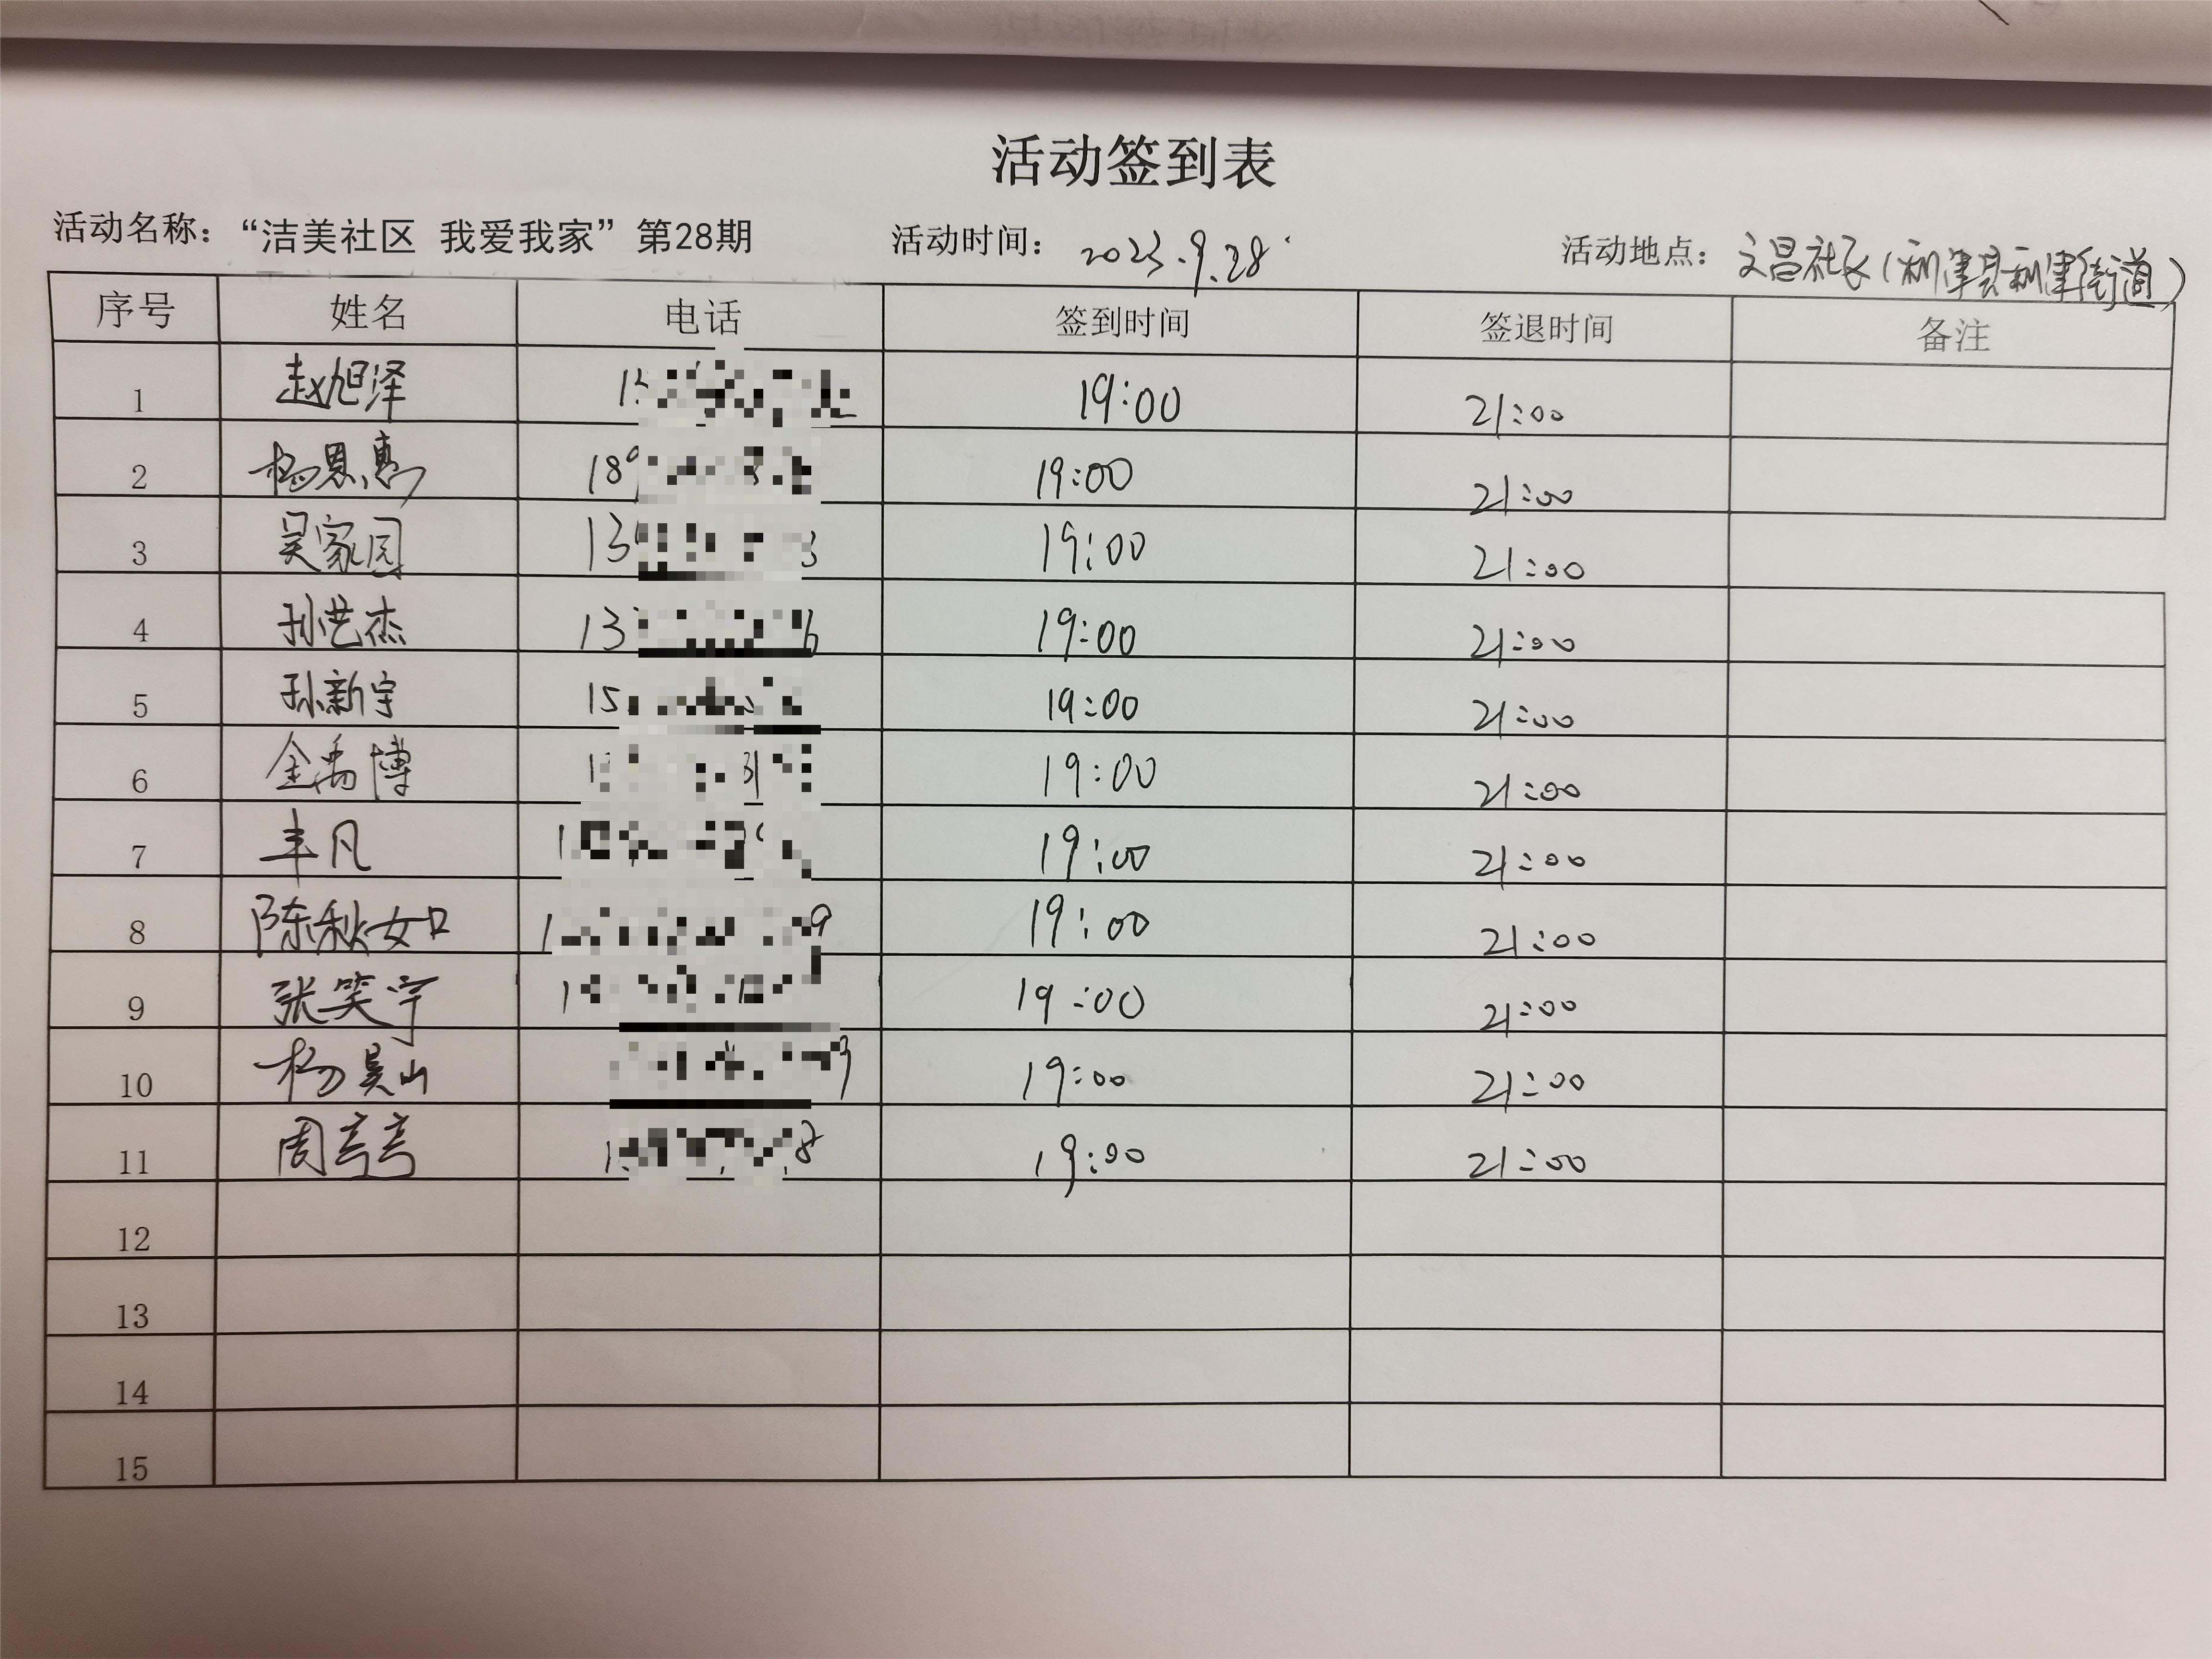 活动签到表
活动名称：“洁美社区 我爱我家”第28期 活动时间：2023.9.28 活动地点：文昌社区（利津县利津街道）
序号 姓名 电话 签到时间 签退时间 备注
1 赵旭泽 1 19:00 21:00
2 杨恩惠 18 19:00 21:00
3 吴家园 13 3 19:00 21:00
4 孙艺杰 13 6 19:00 21:00
5 孙新宇 15 19:00 21:00
6 金禹博 1 31 19:00 21:00
7 丰凡 1 19:00 21:00
8 陈秋如 1 9 19:00 21:00
9 张笑宇 1 19:00 21:00
10 杨昊山 3 19:00 21:00
11 周亮亮 1 8 19:00 21:00
12
13
14
15